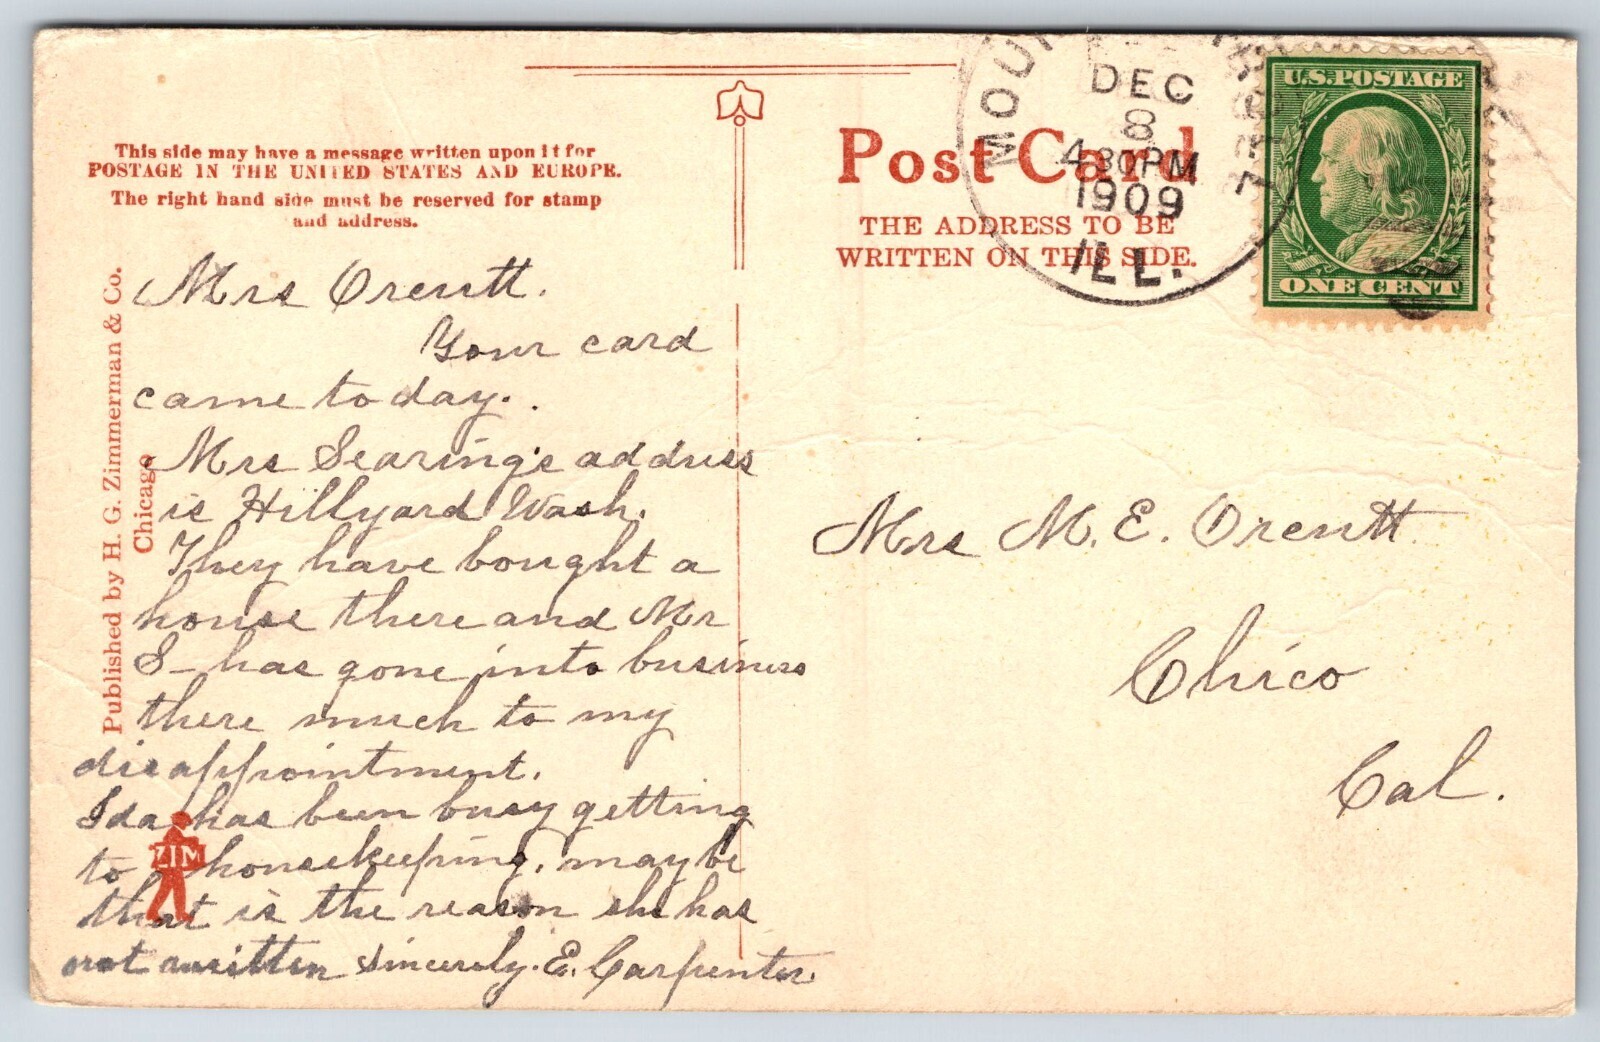 This side may have a message written upon it for
POSTAGE IN THE UNITED STATES AND EUROPE.
The right hand side must be reserved for stamp
and address.
Published by H. G. Zimmerman & Co.
Chicago
Mrs Orcutt.
Your card
came today.
Mrs Searing's address
is Hillyard Wash.
They have bought a
house there and Mr
S- has gone into business
there much to my
disappointment.
Ida has been busy getting
to housekeeping, maybe
that is the reason she has
not written sincerely. E. Carpenter
ZIM
Post Card
THE ADDRESS TO BE
WRITTEN ON THIS SIDE.
DEC
8
4 30PM
1909
ILL.
U.S. POSTAGE
ONE CENT
Mrs M. E. Orcutt
Chico
Cal.